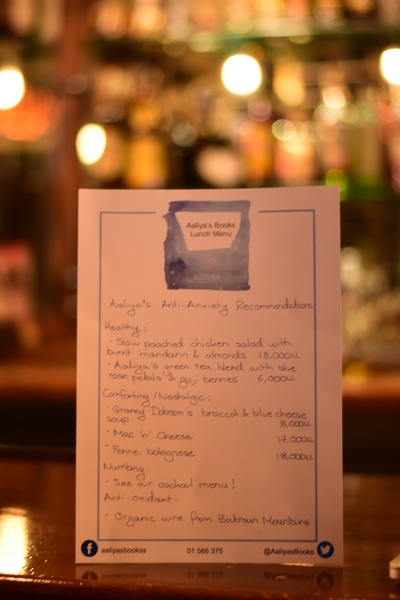 Aaliya's Books
Lunch Menu
Aaliya's Anti-Anxiety Recommendations
Healthy:
- Slow poached chicken salad with
burnt mandarin & almonds 18,000LL
- Aaliya's green tea blend with blue
rose petals & goji berries 6,000LL
Comforting/Nostalgic:
- Granny Dobson's broccoli & blue cheese
soup 8,000LL
- Mac 'n' Cheese 17,000LL
- Penne bolognese 18,000LL
Numbing:
- See our cocktail menu!
Anti-oxidant:
- Organic wine from Batroun Mountains
f aaliyasbookss 01 566 375 @AaliyasBooks